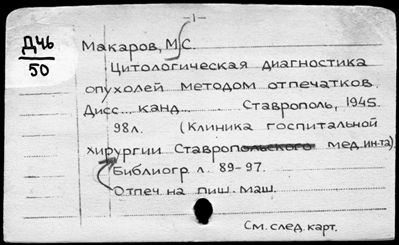 -1-
Дч6
50
Макаров, М.С.
Цитологическая диагностика
опухолей методом отпечатков.
Дисс... канд... Ставрополь, 1945.
98л. (Клиника госпитальной
хирургии Ставропольского мед.ин-та)
Библиогр л. 89-97.
Отпеч. на пиш. маш.
См. след. карт.